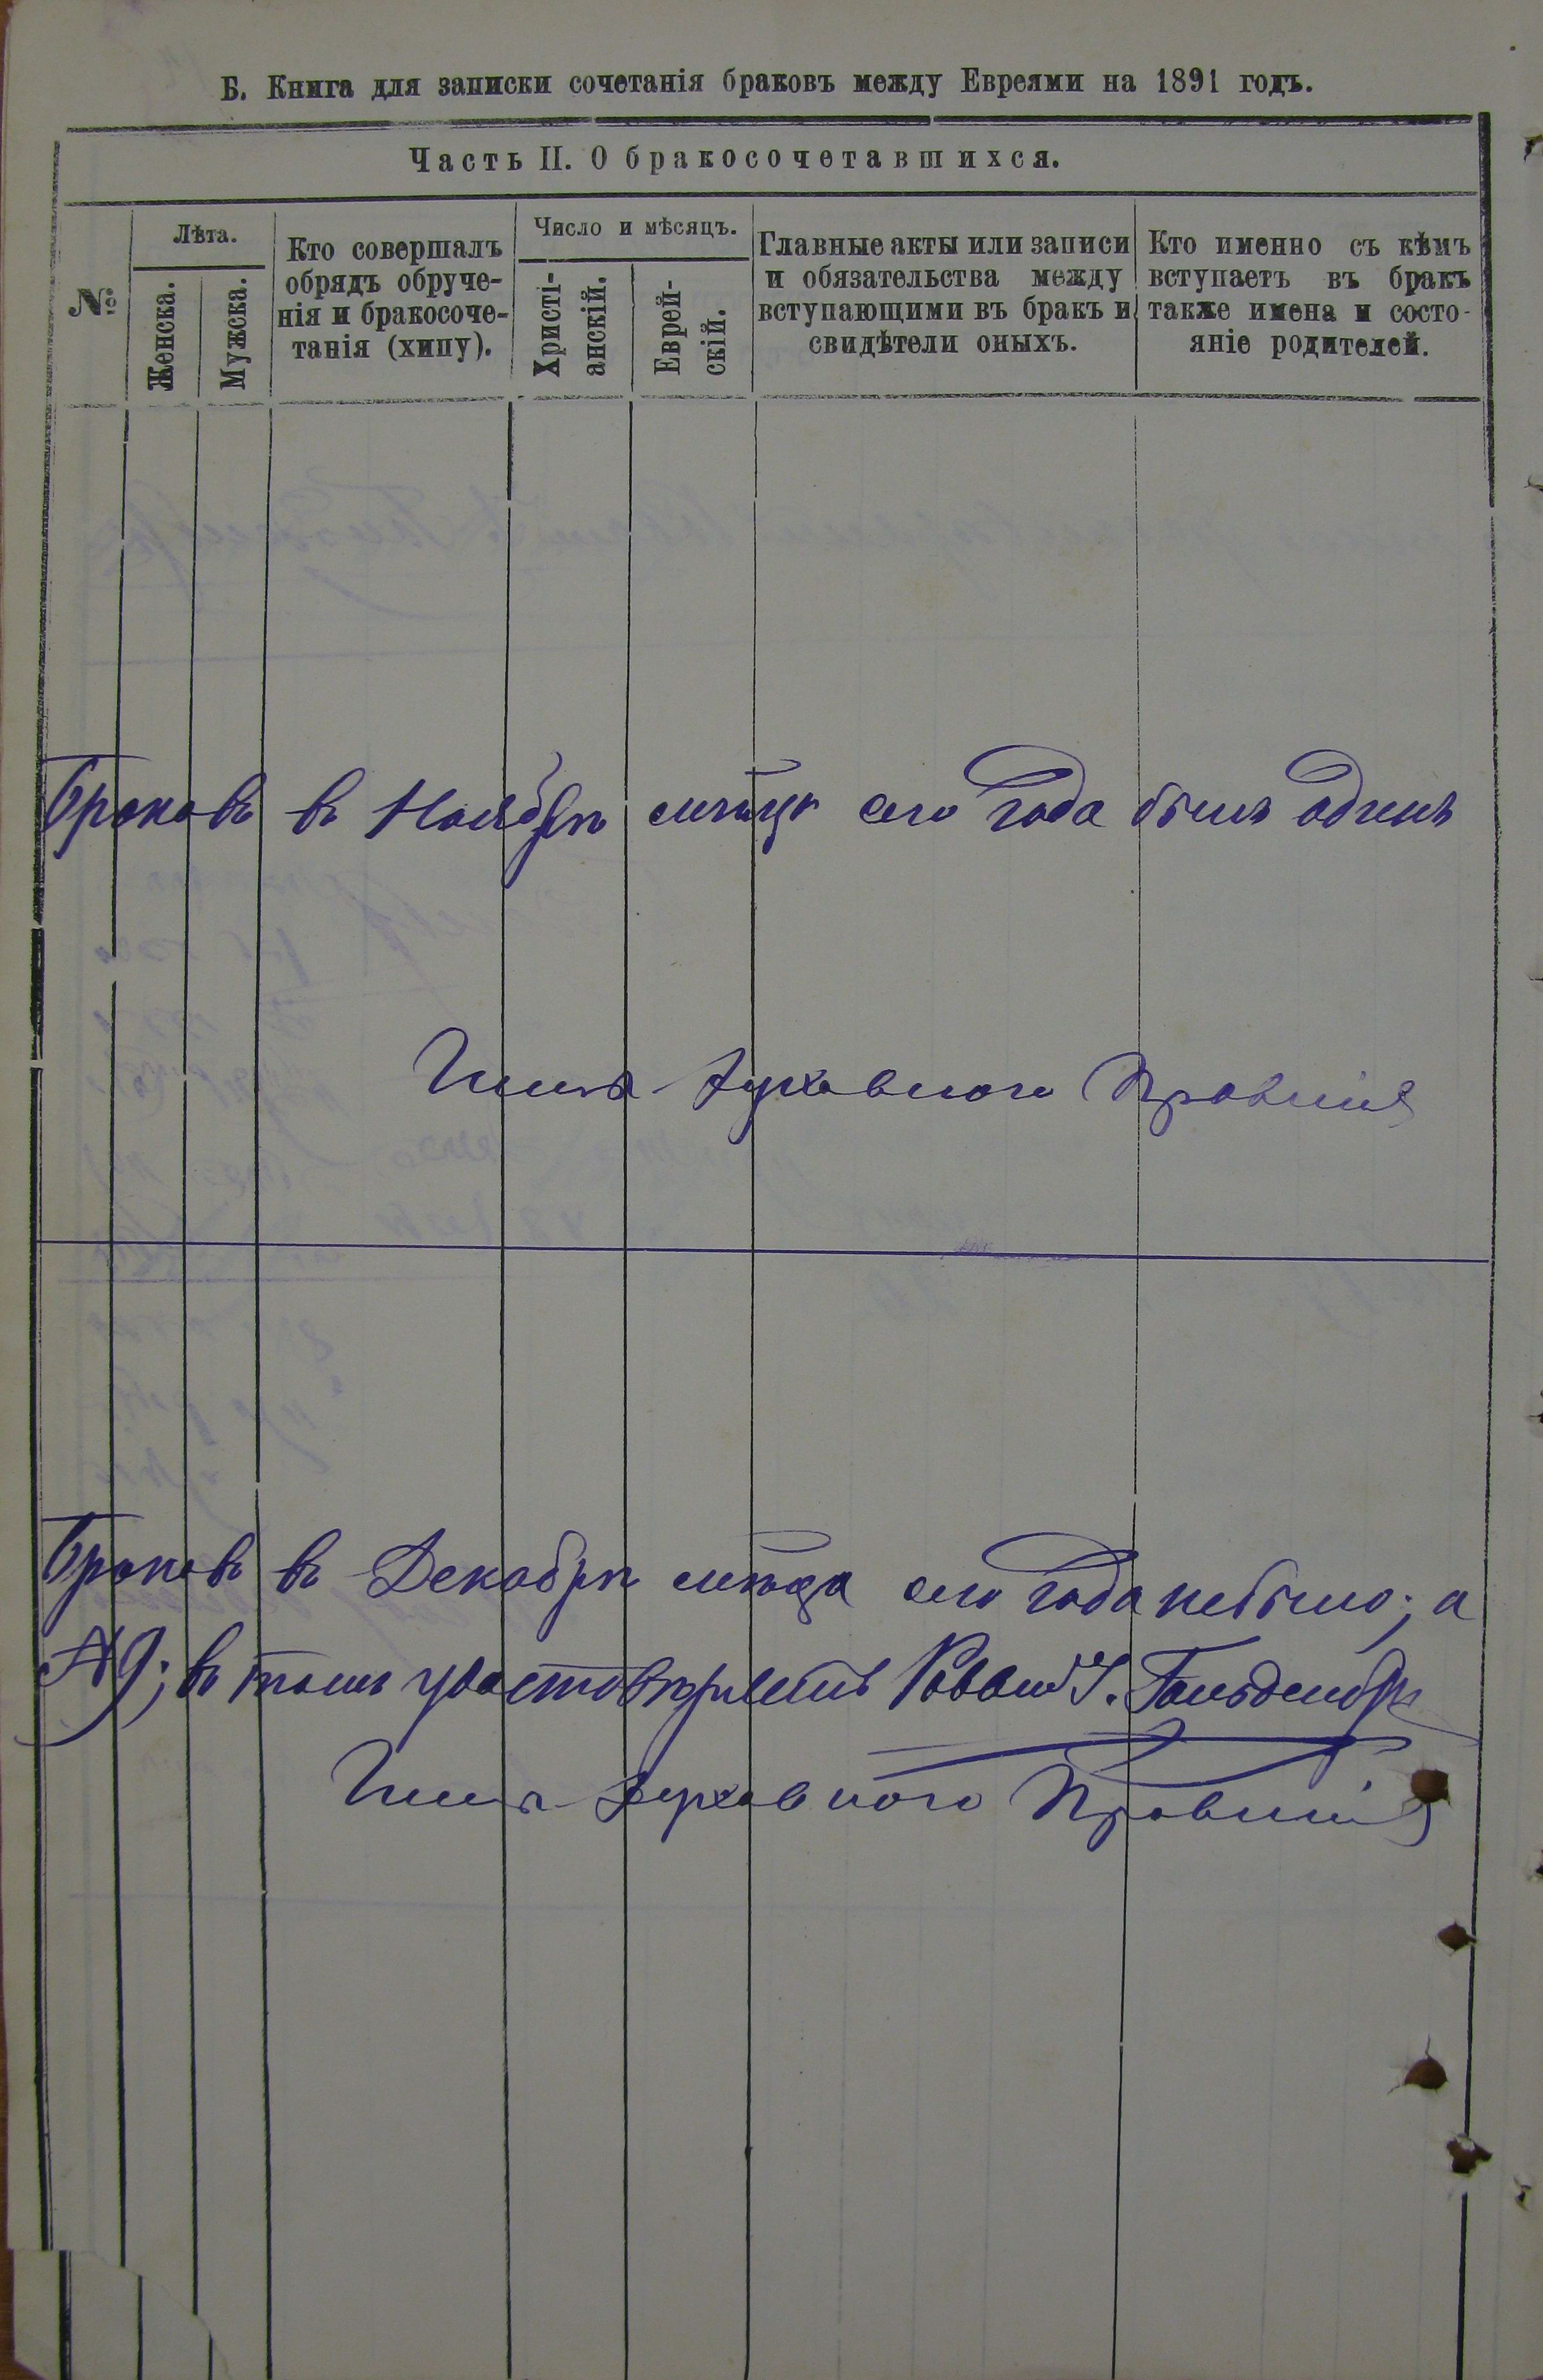 Б. Книга для записки сочетанія браковъ между Евреями на 1891 годъ.
Часть II. О бракосочетавшихся.
№
Лѣта.
Женска.
Мужска.
Кто совершалъ
обрядъ обруче-
нія и бракосоче-
танія (хипу).
Число и мѣсяцъ.
Христі-
анскій.
Еврей-
скій.
Главные акты или записи
и обязательства между
вступающими въ бракъ и
свидѣтели оныхъ.
Кто именно съ кѣмъ
вступаетъ въ бракъ
также имена и состо-
яніе родителей.
Браковъ въ Ноябрѣ сего года былъ одинъ
Духовного Правленія
Браковъ въ Декабрѣ сего года небыло; а
въ томъ Равви
Духовного Правленія